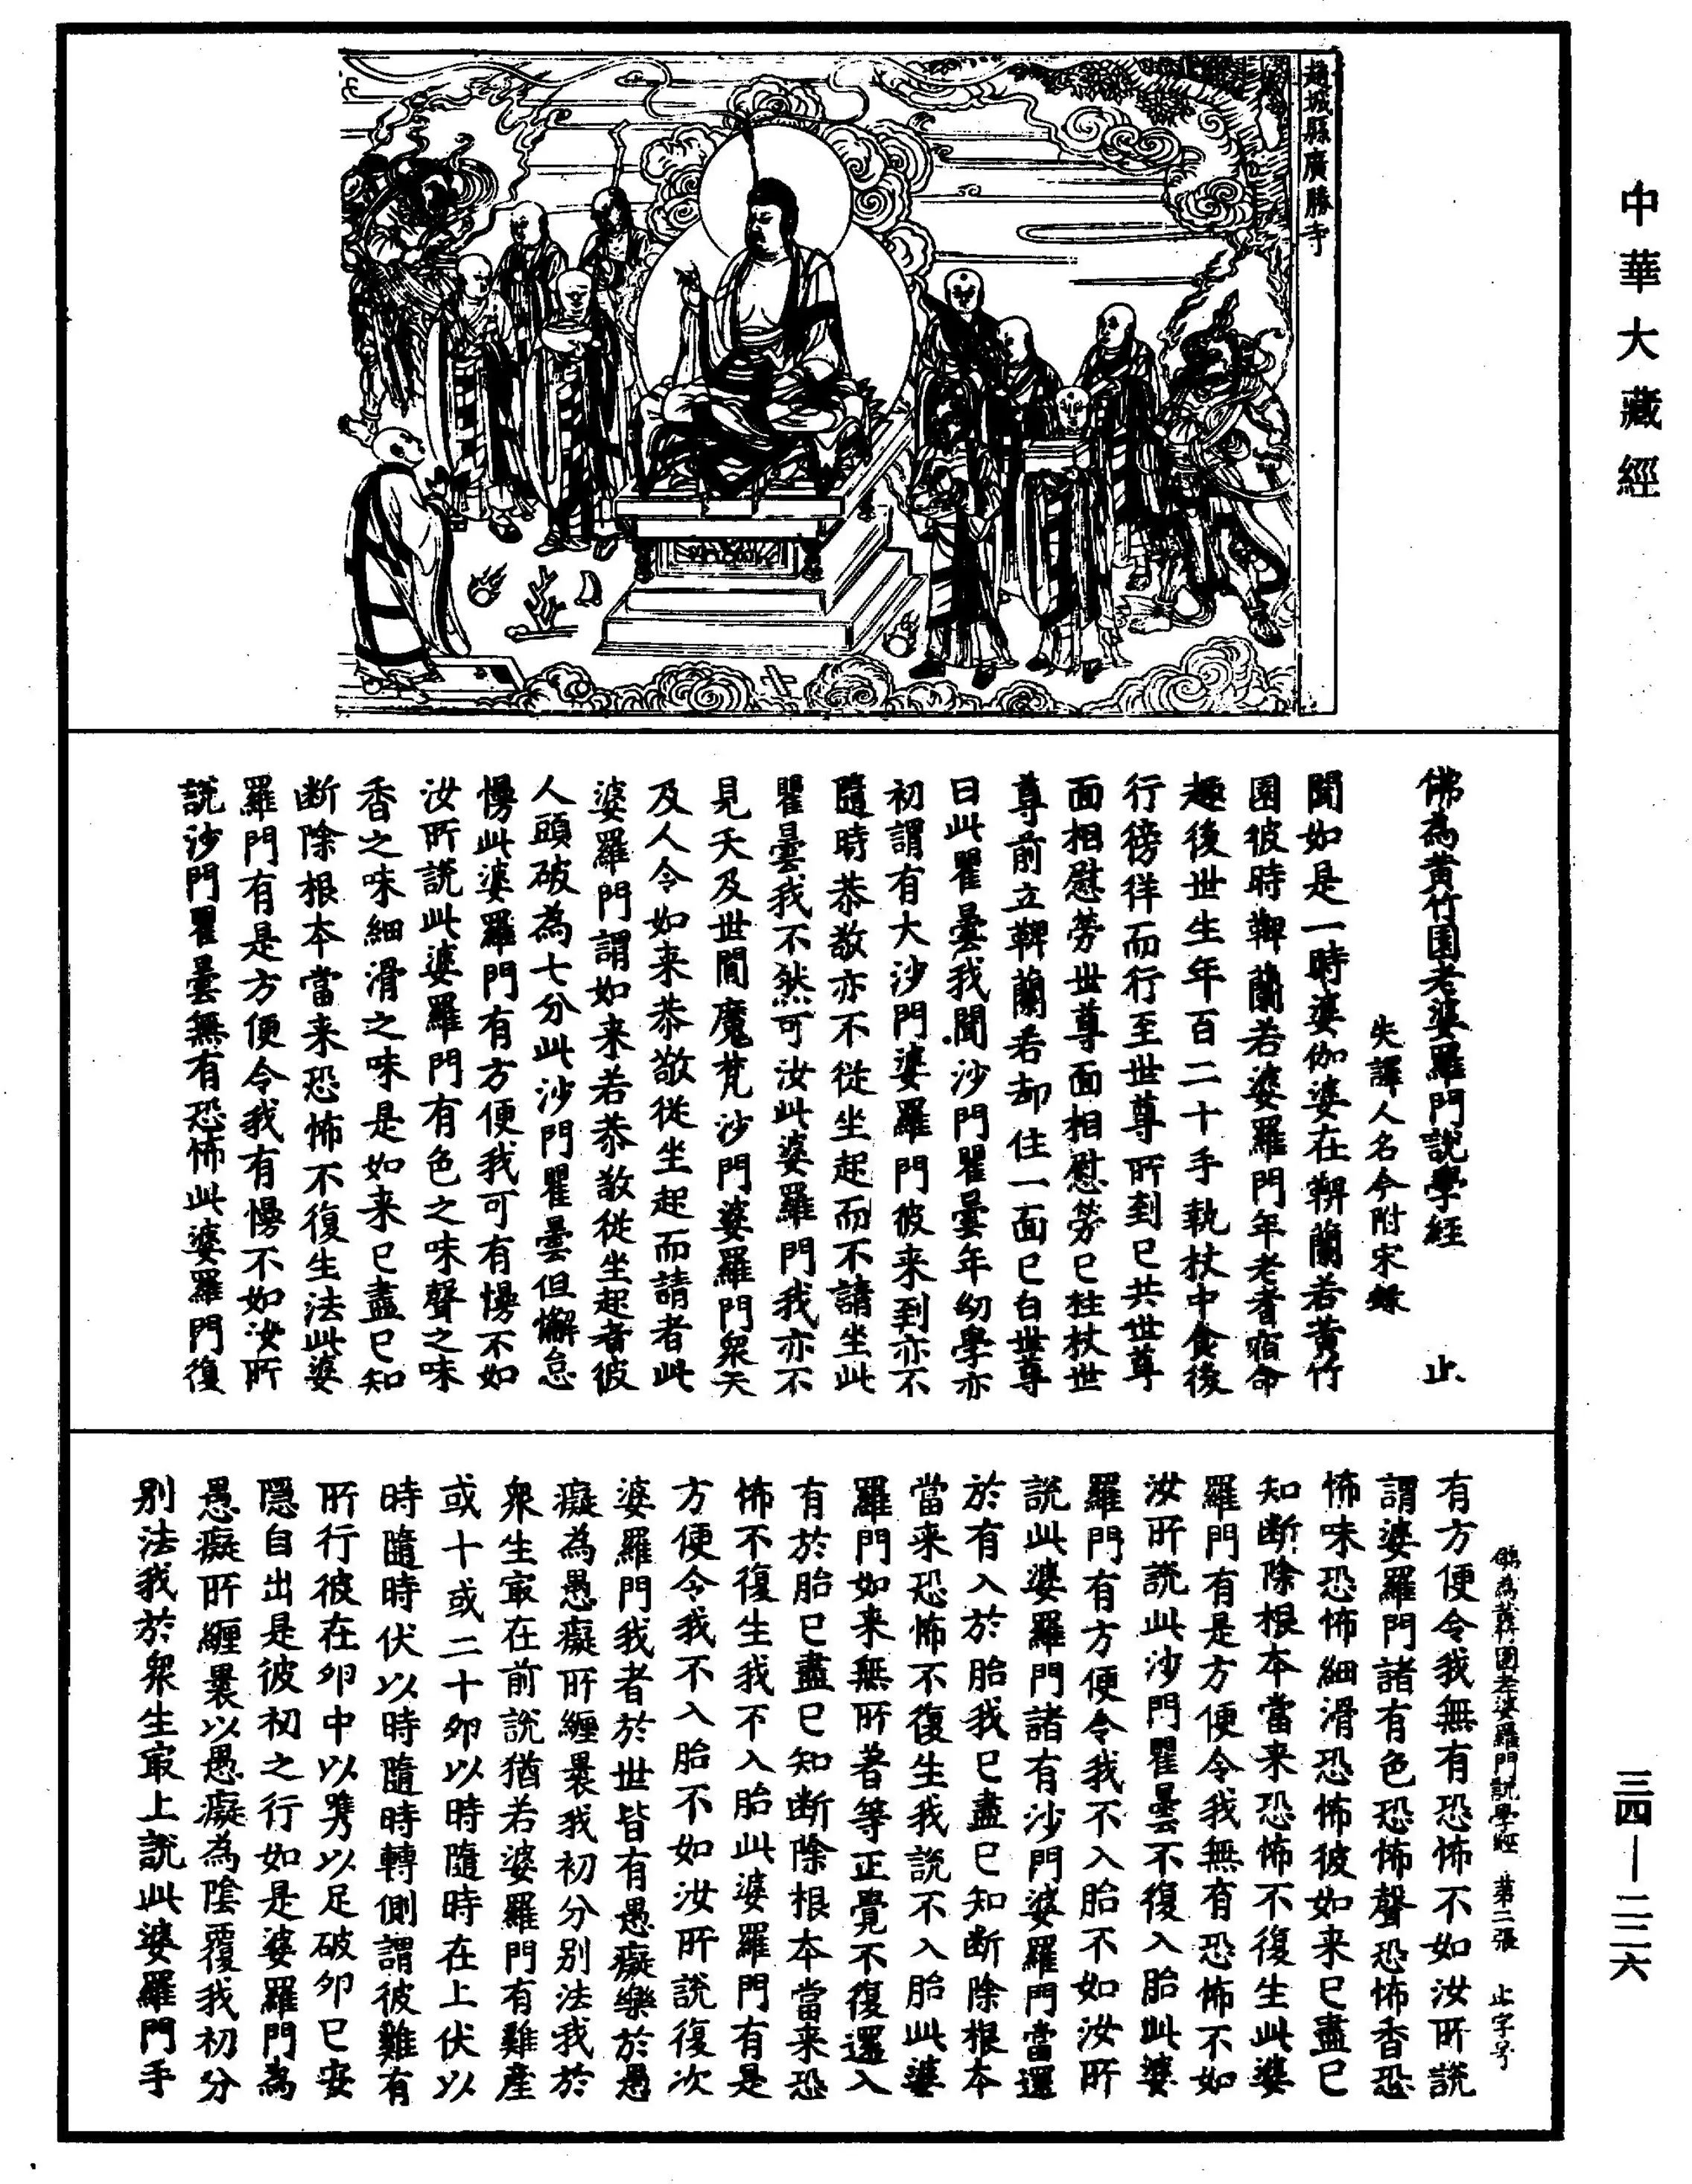 中華大藏經
趙城縣廣勝寺
佛為黃竹園老婆羅門說學經　止
失譯人名今附宋錄
聞如是一時婆伽婆在鞞蘭若黃竹
園彼時鞞蘭若婆羅門年老耆宿命
趣後世生年百二十手執杖中食後
行徬徉而行至世尊所到已共世尊
面相慰勞世尊面相慰勞已拄杖世
尊前立鞞蘭若却住一面已白世尊
曰此瞿曇我聞沙門瞿曇年幼學亦
初謂有大沙門婆羅門彼来到亦不
隨時恭敬亦不從坐起而不請坐此
瞿曇我不然可汝此婆羅門我亦不
見天及世間魔梵沙門婆羅門衆天
及人令如来恭敬從坐起而請者此
婆羅門謂如来若恭敬從坐起者彼
人頭破為七分此沙門瞿曇但懈怠
慢此婆羅門有方便我可有慢不如
汝所說此婆羅門有色之味聲之味
香之味細滑之味是如来已盡已知
断除根本當来恐怖不復生法此婆
羅門有是方便令我有慢不如汝所
說沙門瞿曇無有恐怖此婆羅門復
佛為黃竹園老婆羅門說學經　第二張　止字号
有方便令我無有恐怖不如汝所說
謂婆羅門諸有色恐怖聲恐怖香恐
怖味恐怖細滑恐怖彼如来已盡已
知断除根本當来恐怖不復生此婆
羅門有是方便令我無有恐怖不如
汝所說此沙門瞿曇不復入胎此婆
羅門有方便令我不入胎不如汝所
說此婆羅門諸有沙門婆羅門當還
於有入於胎我已盡已知断除根本
當来恐怖不復生我說不入胎此婆
羅門如来無所著等正覺不復還入
有於胎已盡已知断除根本當来恐
怖不復生我不入胎此婆羅門有是
方便令我不入胎不如汝所說復次
婆羅門我者於世皆有愚癡樂於愚
癡為愚癡所纏裹我初分别法我於
衆生最在前說猶若婆羅門有雞産
或十或二十卵以時隨時在上伏以
時隨時伏以時隨時轉側謂彼雞有
所行彼在卵中以㨗以足破卵已安
隱自出是彼初之行如是婆羅門為
愚癡所纏裹以愚癡為陰覆我初分
别法我於衆生最上說此婆羅門手
三四—二二六